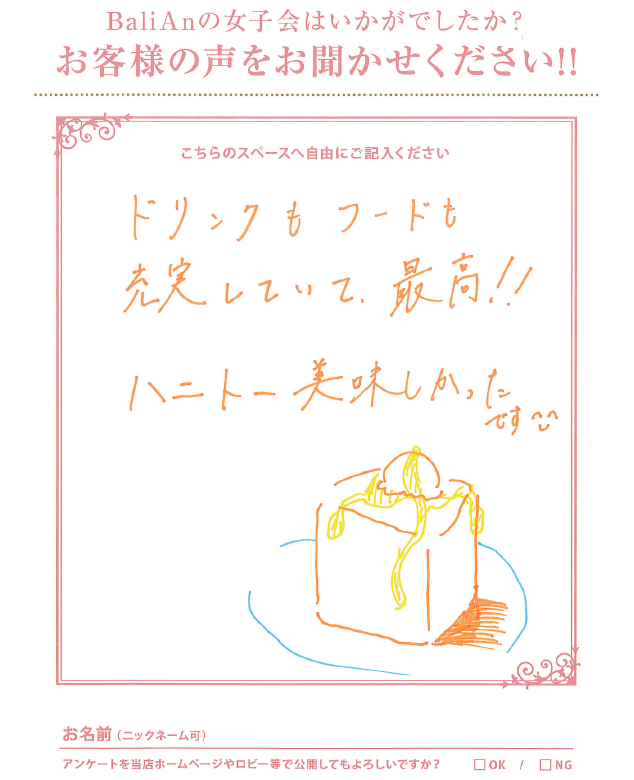 BaliAnの女子会はいかがでしたか？
お客様の声をお聞かせください!!
こちらのスペースへ自由にご記入ください
ドリンクもフードも
充実していて、最高!!
ハニトー美味しかった
です^^
お名前（ニックネーム可）
アンケートを当店ホームページやロビー等で公開してもよろしいですか？ □OK / □NG